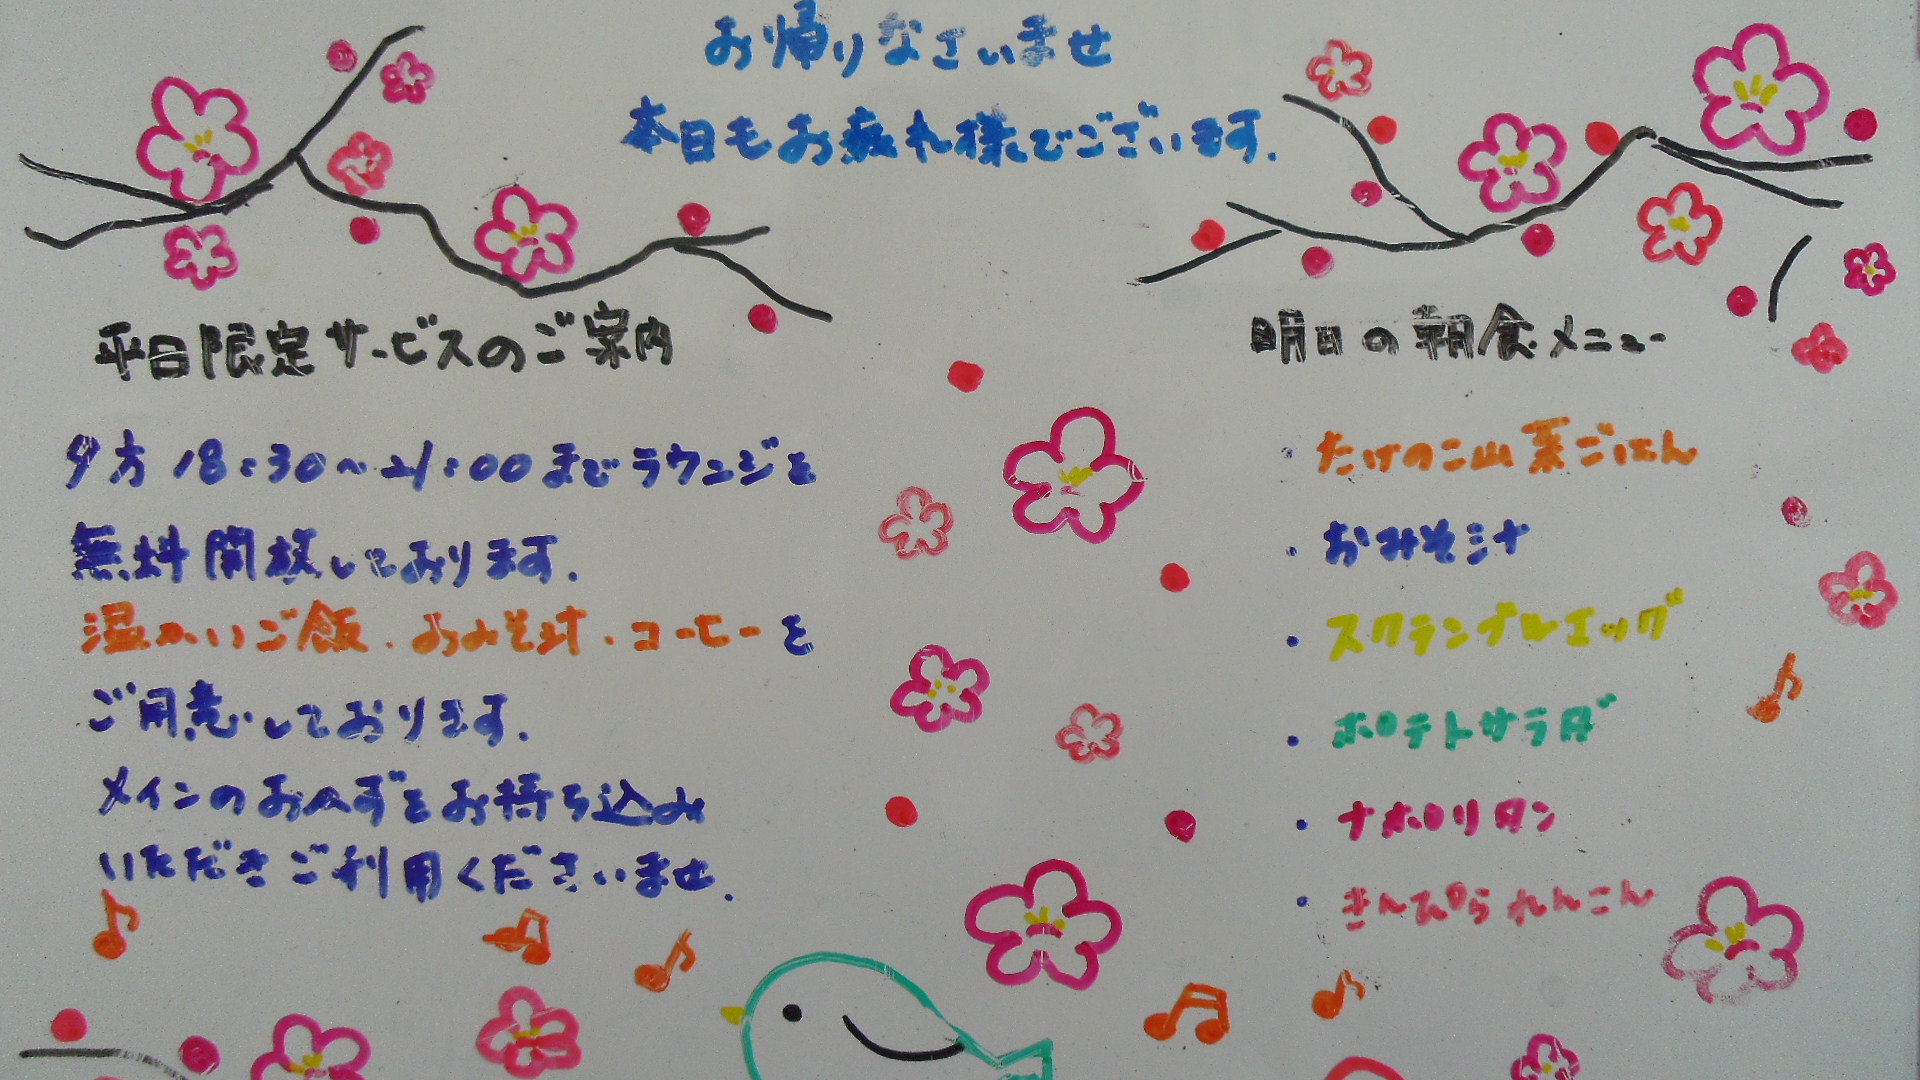 お帰りなさいませ
本日もお疲れ様でございます.
平日限定サービスのご案内
夕方18:30~21:00までラウンジを
無料開放しております.
温かいご飯・おみそ汁・コーヒーを
ご用意しております.
メインのおかずをお持ち込み
いただきご利用くださいませ.
明日の朝食メニュー
・たけのこ山菜ごはん
・おみそ汁
・スクランブルエッグ
・ポテトサラダ
・ナポリタン
・きんぴられんこん